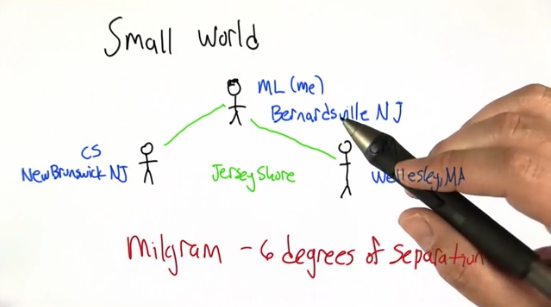 Small world
ML (me)
Bernardsville NJ
CS
New Brunswick NJ
Jersey Shore
Wellesley, MA
Milgram - 6 degrees of separation